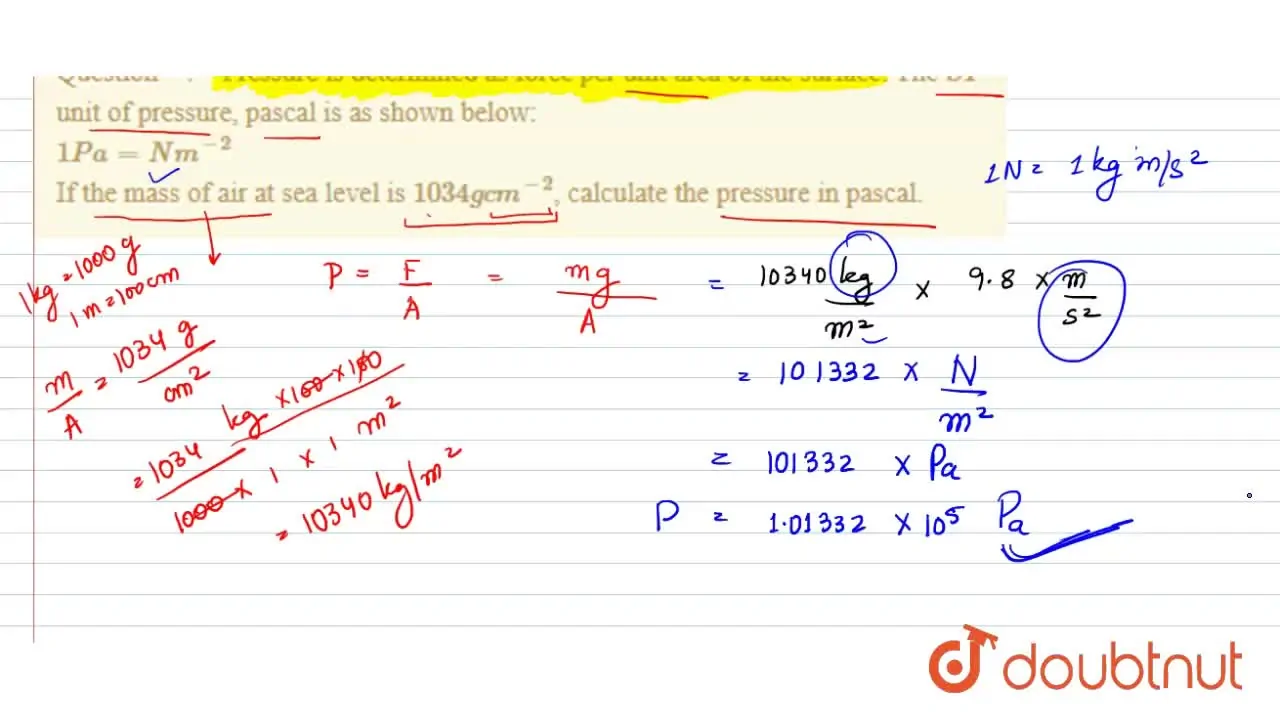 Question : Pressure is determined as force per unit area of the surface. The SI
unit of pressure, pascal is as shown below:
1Pa = Nm⁻²
If the mass of air at sea level is 1034gcm⁻², calculate the pressure in pascal.
1N = 1 kg m/s²
1kg = 1000 g
1 m = 100 cm
P = F/A = mg/A = 10340 kg/m² × 9.8 × m/s²
m/A = 1034 g/cm²
= 1034 kg × 100 × 100 / 1000 × 1 × 1 m²
= 10340 kg/m²
= 101332 × N/m²
= 101332 × Pa
P = 1.01332 × 10⁵ Pa
doubtnut